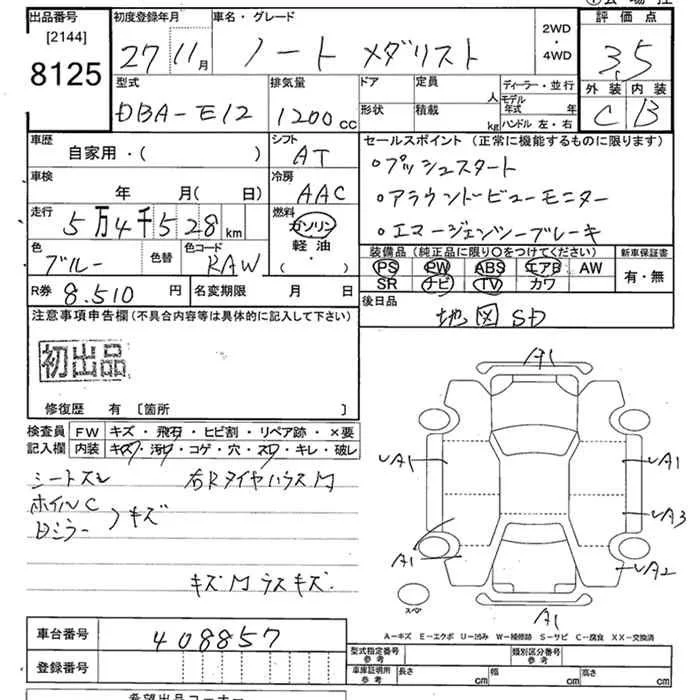 出品番号
[2144]
8125
初度登録年月
27 11月
車名・グレード
ノート メダリスト
2WD
・
4WD
評価点
3.5
外装 内装
C B
型式
DBA-E12
排気量
1200cc
ドア
形状
定員
人
積載
kg
ディーラー・並行
モデル
年式 年
ハンドル 左・右
車歴
自家用・( )
シフト
AT
車検
年 月( 日)
冷房
AAC
走行
5万4千528km
燃料
ガソリン
軽油
( ・ )
色
ブルー
色替
色コード
RAW
R券 8.510 円
名変期限 月 日
セールスポイント (正常に機能するものに限ります)
・プッシュスタート
・アラウンドビューモニター
・エマージェンシーブレーキ
装備品 (純正品に限り○をつけてください)
PS PW ABS エアB AW
SR ナビ TV カワ
新車保証書
有・無
後日品
地図SD
注意事項申告欄(不具合内容等は具体的に記入して下さい)
初出品
修復歴 有 [箇所 ]
検査員
記入欄
FW キズ・飛石・ヒビ割・リペア跡・×要
内装 キズ・汚れ・コゲ・穴・スレ・キレ・破レ
シートスレ 右Rタイヤハウス M
ホイルC
Dミラー
キズ
キズM ラスキズ.
A1
A1
A1
A1
A3
A2
A1
スペア
A-キズ E-エクボ U-凹み W-補修跡 S-サビ C-腐食 XX-交換済
車台番号
408857
登録番号
型式指定番号
参考
類別区分番号
参考
車庫証明用
参考
長さ cm
幅 cm
高さ cm
希望出品コーナー